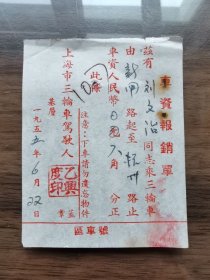 車資報銷單
茲有刘文治同志乘三輪車
由路起至杭州路止
車資人民币0元六角分
此據
注意:下車請勿遺忘物件
上海市三輪車駕駛人
基層 蓋章
一九五五年6月22日
區車號